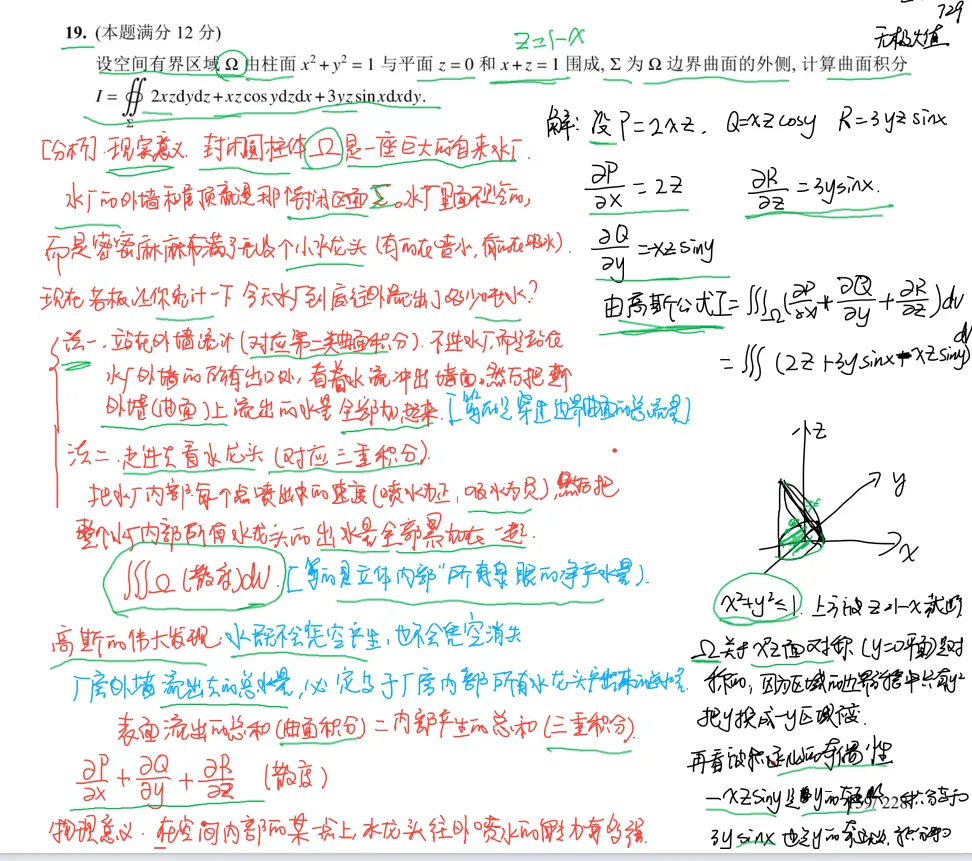 729
无极大值
19. (本题满分 12 分)
z=1-x
设空间有界区域 Ω 由柱面 x²+y²=1 与平面 z=0 和 x+z=1 围成, Σ 为 Ω 边界曲面的外侧, 计算曲面积分
I = ∯_Σ 2xzdydz+xz cos ydzdx+3yz sin xdxdy.
[分析] 现实意义. 封闭圆柱体 Ω 是一座巨大的自来水厂.
水厂的外墙和屋顶就是那个封闭区面 Σ。水厂里面不是空的,
而是密密麻麻布满了无数个小水龙头 (有的在喷水, 有的在吸水).
现在老板让你统计一下 今天水厂到底往外流出了多少吨水?
法一. 站在外墙统计 (对应第二类曲面积分). 不进水厂,而是站在
水厂外墙的所有出口处, 看着水流冲出墙面。然后把
外墙(曲面)上流出的水量 全部加起来. [算的是穿过边界曲面的总流量]
法二. 走进去看水龙头 (对应三重积分).
把水厂内部每个点喷出来的速度 (喷水为正, 吸水为负), 然后把
整个水厂内部所有水龙头的出水量全部累加在一起.
∭Ω (散度)dv. [算的是立体内部"所有泉眼的净产水量).
高斯的伟大发现: 水既不会凭空产生, 也不会凭空消失
厂房外墙流出去的总水量, 必定等于厂房内部所有水龙头产出来的
表面流出的总和 (曲面积分) = 内部产生的总和 (三重积分).
∂P/∂x + ∂Q/∂y + ∂R/∂z (散度)
物理意义. 在空间内部的某一点上, 水龙头往外喷水的能力有多强.
解: 设 P=2xz. Q=xz cosy R=3yz sinx
∂P/∂x = 2z ∂R/∂z = 3y sinx.
∂Q/∂y = -xz siny
由高斯公式 I = ∭Ω (∂P/∂x + ∂Q/∂y + ∂R/∂z) dv
= ∭ (2z+3y sinx - xz siny) dv
z
y
x
x²+y²≤1. 上方被 z=1-x
Ω 关于 xz面对称 (y=0平面)是对
称的, 因为区域的边界方程中只有y²
把y换成-y区域不变.
再看被积函数的奇偶性
-xz siny 是y的奇函数 积分等于0
3y sinx 也是y的奇函数, 积分